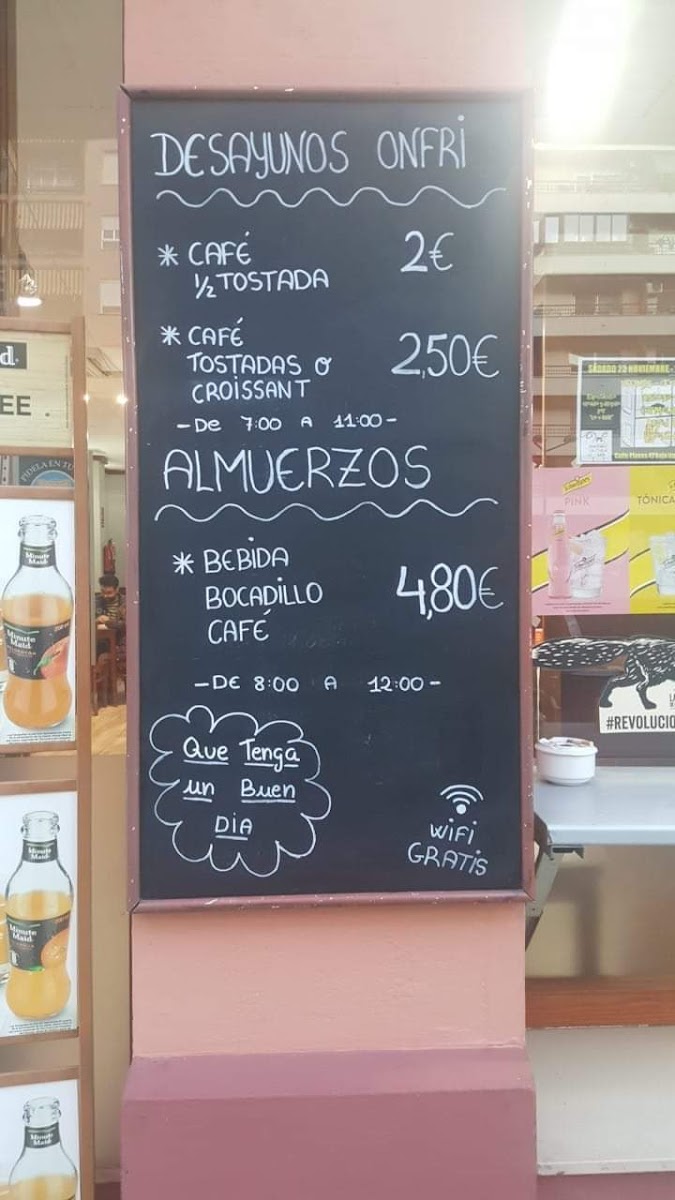 DESAYUNOS ONFRI
* CAFÉ 2€
½ TOSTADA
* CAFÉ
TOSTADAS O 2,50€
CROISSANT
- DE 7:00 A 11:00 -
ALMUERZOS
* BEBIDA
BOCADILLO 4,80€
CAFÉ
- DE 8:00 A 12:00 -
Que Tenga
un Buen
DIA
WiFi
GRATIS
d.
EE.
FIDELA EN TU
Minute
Maid
Minute
Maid
Minute
Maid
Minute
Maid
Minute
Maid
SÁBADO 23 NOVIEMBRE
PINK
TÓNICA
LA
#REVOLUCIO